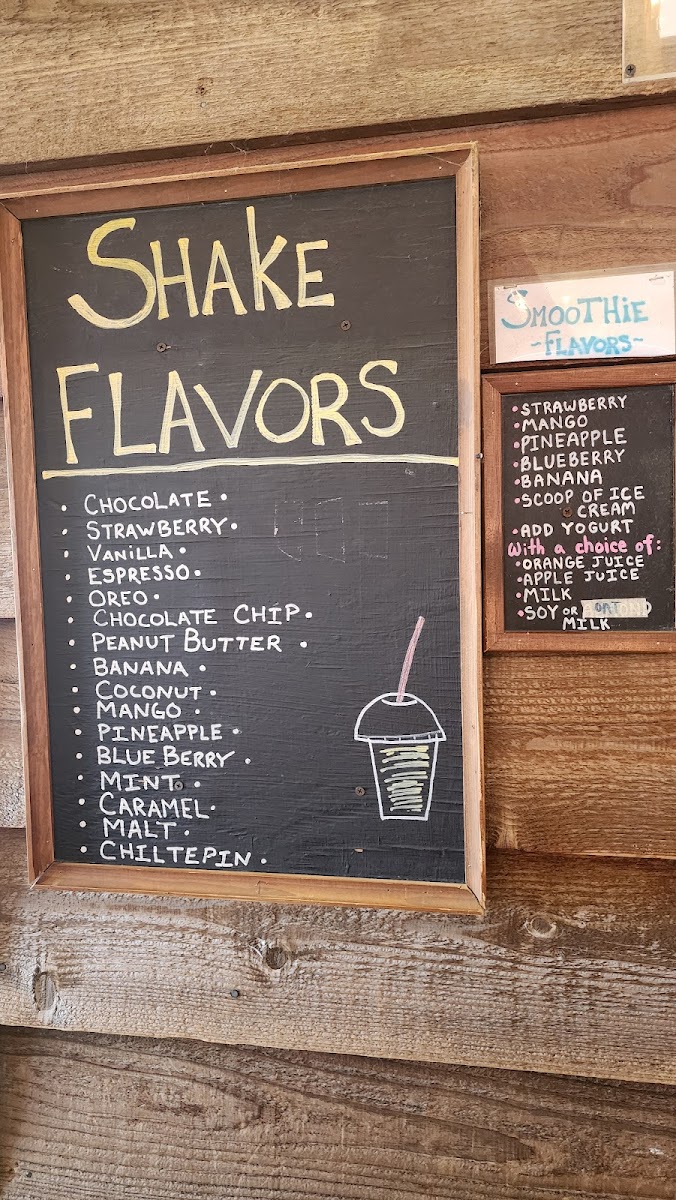 SHAKE
FLAVORS
• CHOCOLATE •
• STRAWBERRY •
• VANILLA •
• ESPRESSO •
• OREO •
• CHOCOLATE CHIP •
• PEANUT BUTTER •
• BANANA •
• COCONUT •
• MANGO •
• PINEAPPLE •
• BLUE BERRY •
• MINT •
• CARAMEL •
• MALT •
• CHILTEPIN •
SMOOTHIE
~FLAVORS~
• STRAWBERRY
• MANGO
• PINEAPPLE
• BLUEBERRY
• BANANA
• SCOOP OF ICE
CREAM
• ADD YOGURT
With a choice of:
• ORANGE JUICE
• APPLE JUICE
• MILK
• SOY OR OAT
MILK